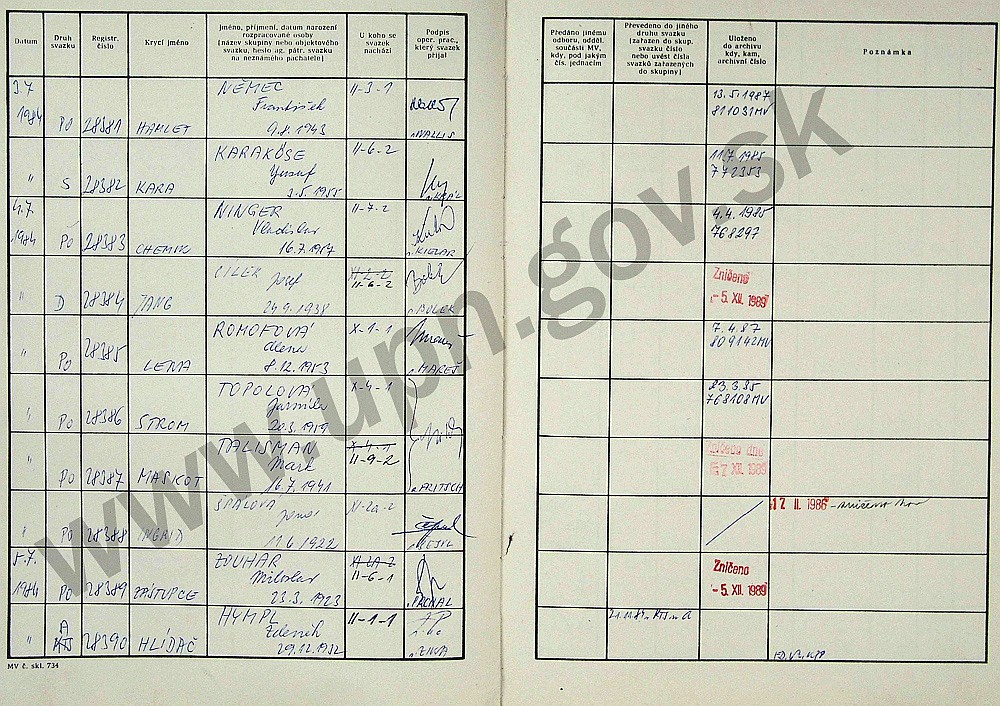 Datum
Druh svazku
Registr. číslo
Krycí jméno
Jméno, příjmení, datum narození
rozpracované osoby
(název skupiny nebo objektového
svazku, heslo ag. pátr. svazku
na neznámého pachatele)
U koho se
svazek
nachází
Podpis
oper. prac.,
který svazek
přijal
Předáno jinému
odboru, odděl.
součásti MV,
kdy, pod jakým
čís. jednacím
Převedeno do jiného
druhu svazku
(zařazen do skup.
svazku číslo
nebo uvést čísla
svazků zařazených
do skupiny)
Uloženo
do archivu
kdy, kam,
archivní číslo
Poznámka
3.7
1984 PO 28381 HAMLET
NĚMEC
František
9.8.1943
II-3-1
VALLIS
13.5.1987
811031MV
" S 28382 KARA
KARAKÖSE
Yusuf
2.5.1955
II-6-2
KRÁL
11.7.1985
772353
4.7
1984 PO 28383 CHEMIK
NINGER
Vladislav
16.7.1957
II-7-2
KIELAR
4.4.1985
768297
" D 28384 TANG
CILEK
Josef
24.9.1938
XI-2-2
II-6-2
BOLEK
Zničeno
-5. XII. 1989
" PO 28385 LENA
ROMOFOVÁ
Alena
8.12.1953
X-1-1
MAREŠ
7.4.87
809142MV
" PO 28386 STROM
TOPOLOVÁ
Jarmila
20.3.1959
X-4-1
23.3.85
768108MV
" PO 28387 MASKOT
TALISMAN
Mark
16.7.1941
X-4-1
II-9-2
FRITSCH
Zničeno dne
XII. 1989
" PO 28388 INGRID
SPALOVÁ
11.6.1922
17 II. 1986
5.7.
1984 PO 28389 ZÁSTUPCE
ZOUHAR
Miloslav
23.3.1923
XI-2A-2
II-6-1
PROKAL
Zničeno
-5. XII. 1989
" A
KTS 28390 HLÍDAČ
HYMPL
Zdeněk
29.12.1952
II-1-1
ZIKA
MV č. skl. 734
www.upn.gov.sk